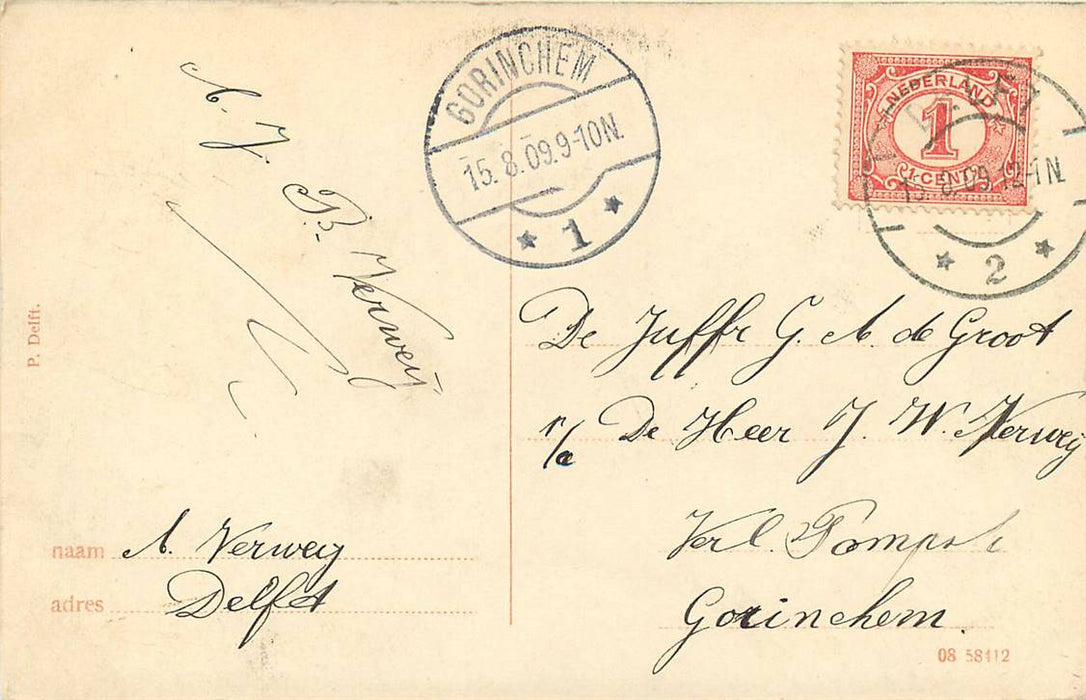 GORINCHEM
15.8.09.9-10N.
1
NEDERLAND
1
1·CENT
8.09.12-1N
2
A. J.
B. Verweij
P. Delft.
De Juffr G. A. de Groot
De Heer J. W. Verweij
Verl.
Gorinchem.
naam A. Verweij
adres Delft
08 58412